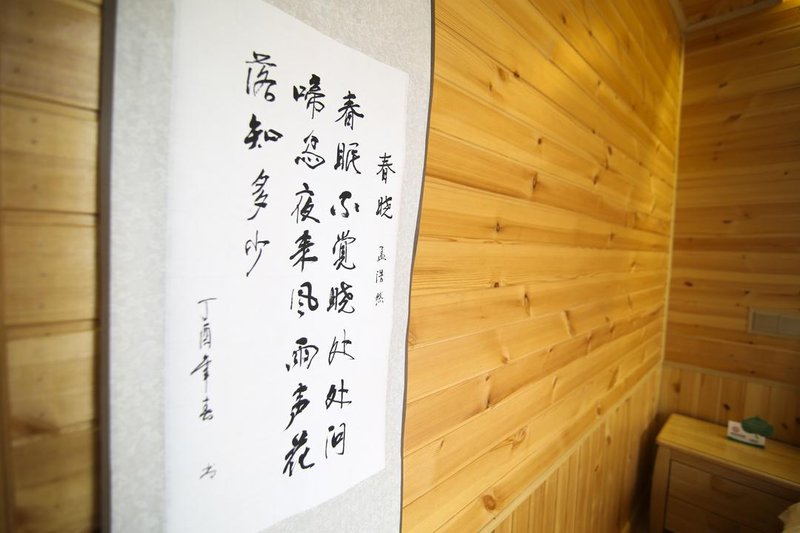 春晓 孟浩然
春眠不觉晓处处闻
啼忽夜来风雨声花
落知多少
丁酉年春 书